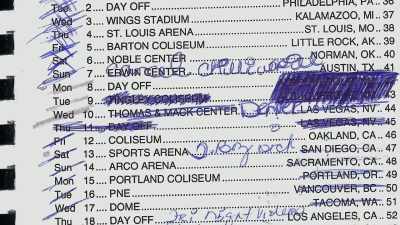 Tue 2.... DAY OFF........ PHILADELPHIA, PA.. 36
Wed 3.... WINGS STADIUM........ KALAMAZOO, MI.. 37
Thu 4.... ST. LOUIS ARENA........ ST. LOUIS, MO.. 38
Fri 5.... BARTON COLISEUM........ LITTLE ROCK, AK.. 39
Sat 6.... NOBLE CENTER........ NORMAN, OK.. 40
Sun 7.... ERWIN CENTER........ AUSTIN, TX.. 41
Mon 8.... DAY OFF
Tue 9....
Wed 10.... THOMAS & MACK CENTER Denver LAS VEGAS, NV.. 44
Thu 11.... DAY OFF........ LAS VEGAS, NV.. 45
Fri 12.... COLISEUM........ OAKLAND, CA.. 46
Sat 13.... SPORTS ARENA........ SAN DIEGO, CA.. 47
Sun 14.... ARCO ARENA........ SACRAMENTO, CA.. 48
Mon 15.... PORTLAND COLISEUM........ PORTLAND, OR.. 49
Tue 16.... PNE........ VANCOUVER, BC.. 50
Wed 17.... DOME........ TACOMA, WA.. 51
Thu 18.... DAY OFF Night Videos LOS ANGELES, CA.. 52